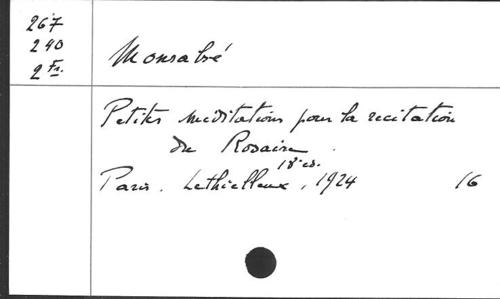 267
240
2 Fr.
Monsabré
Petites méditations pour la recitation
du Rosaire.
18e éd.
Paris. Lethielleux, 1924 16